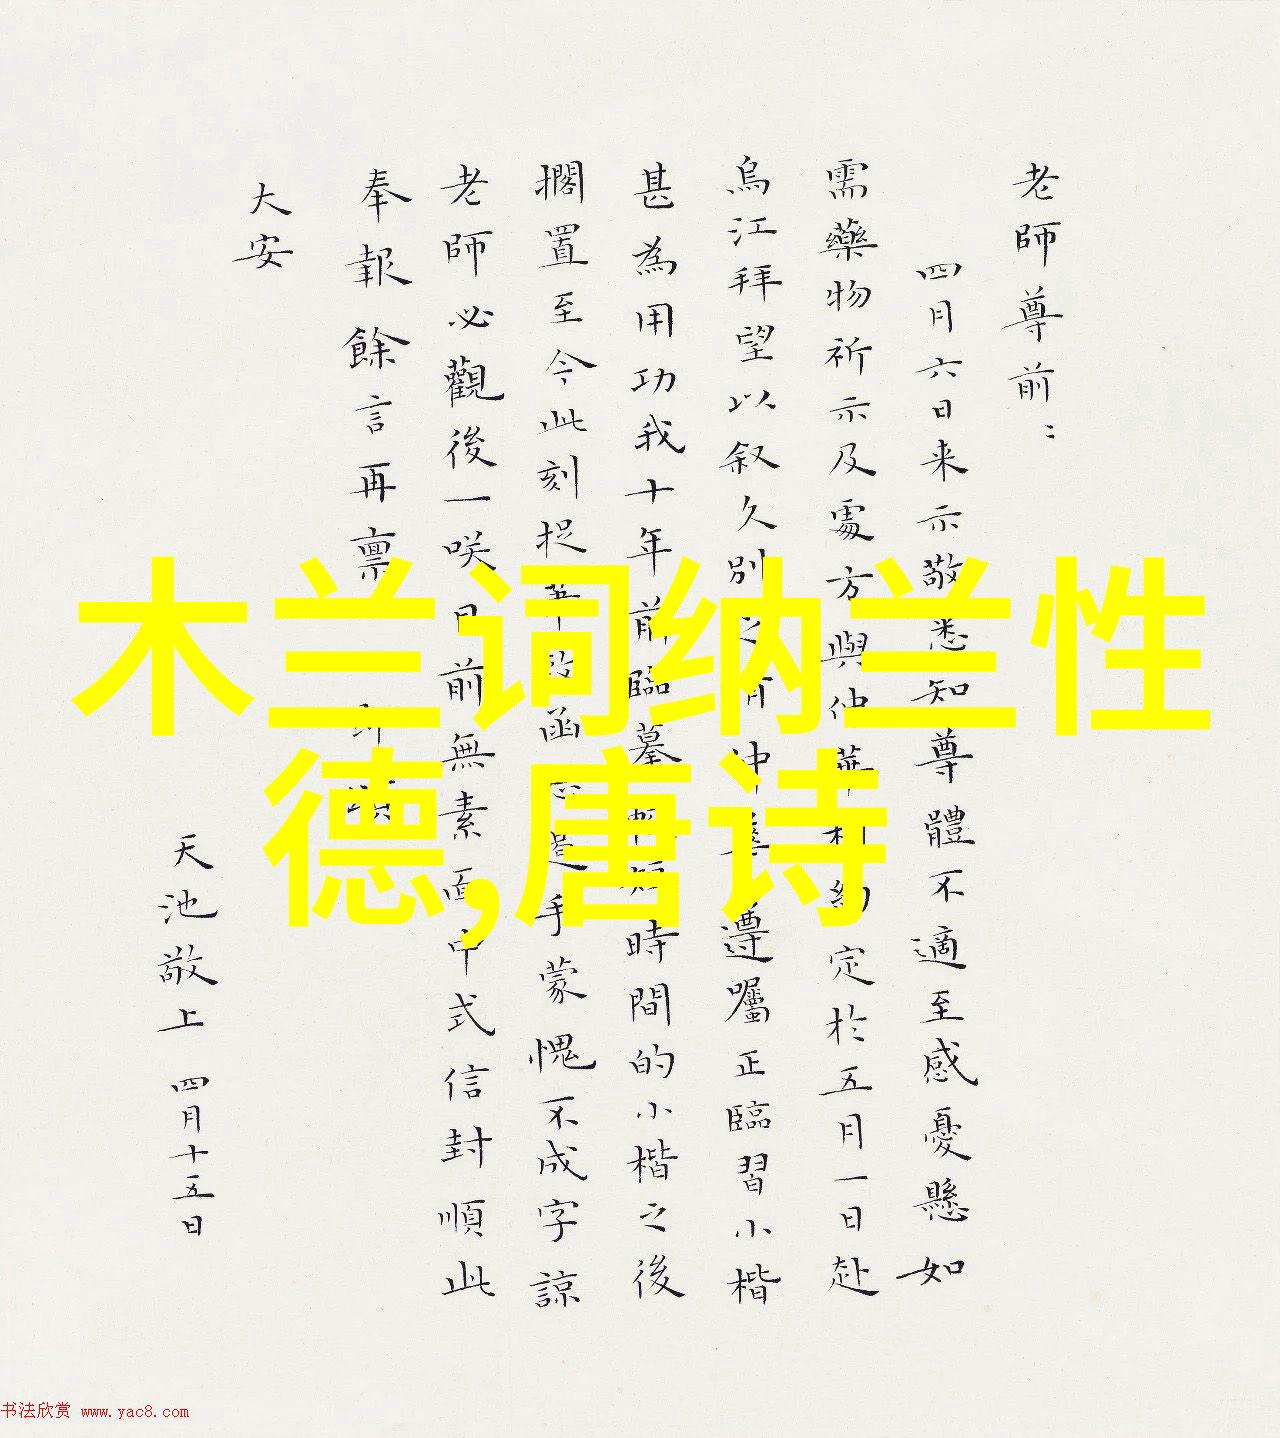 老師尊前：
四月六日来示敬悉知尊體不適至感憂懸如
需藥物祈示及處方與仲華約定於五月一日赴
烏江拜望以叙久別之 仲華遵囑正臨習小楷
甚為用功我十年前臨摹 短時間的小楷之後
擱置至今此刻捉 函 手蒙愧不成字諒
老師必觀後一咲日前無素面中式信封順此
奉報餘言再禀 頌
大安
天池敬上 四月十五日
木兰词纳兰性
德,唐诗
书法欣赏 www.yac8.com